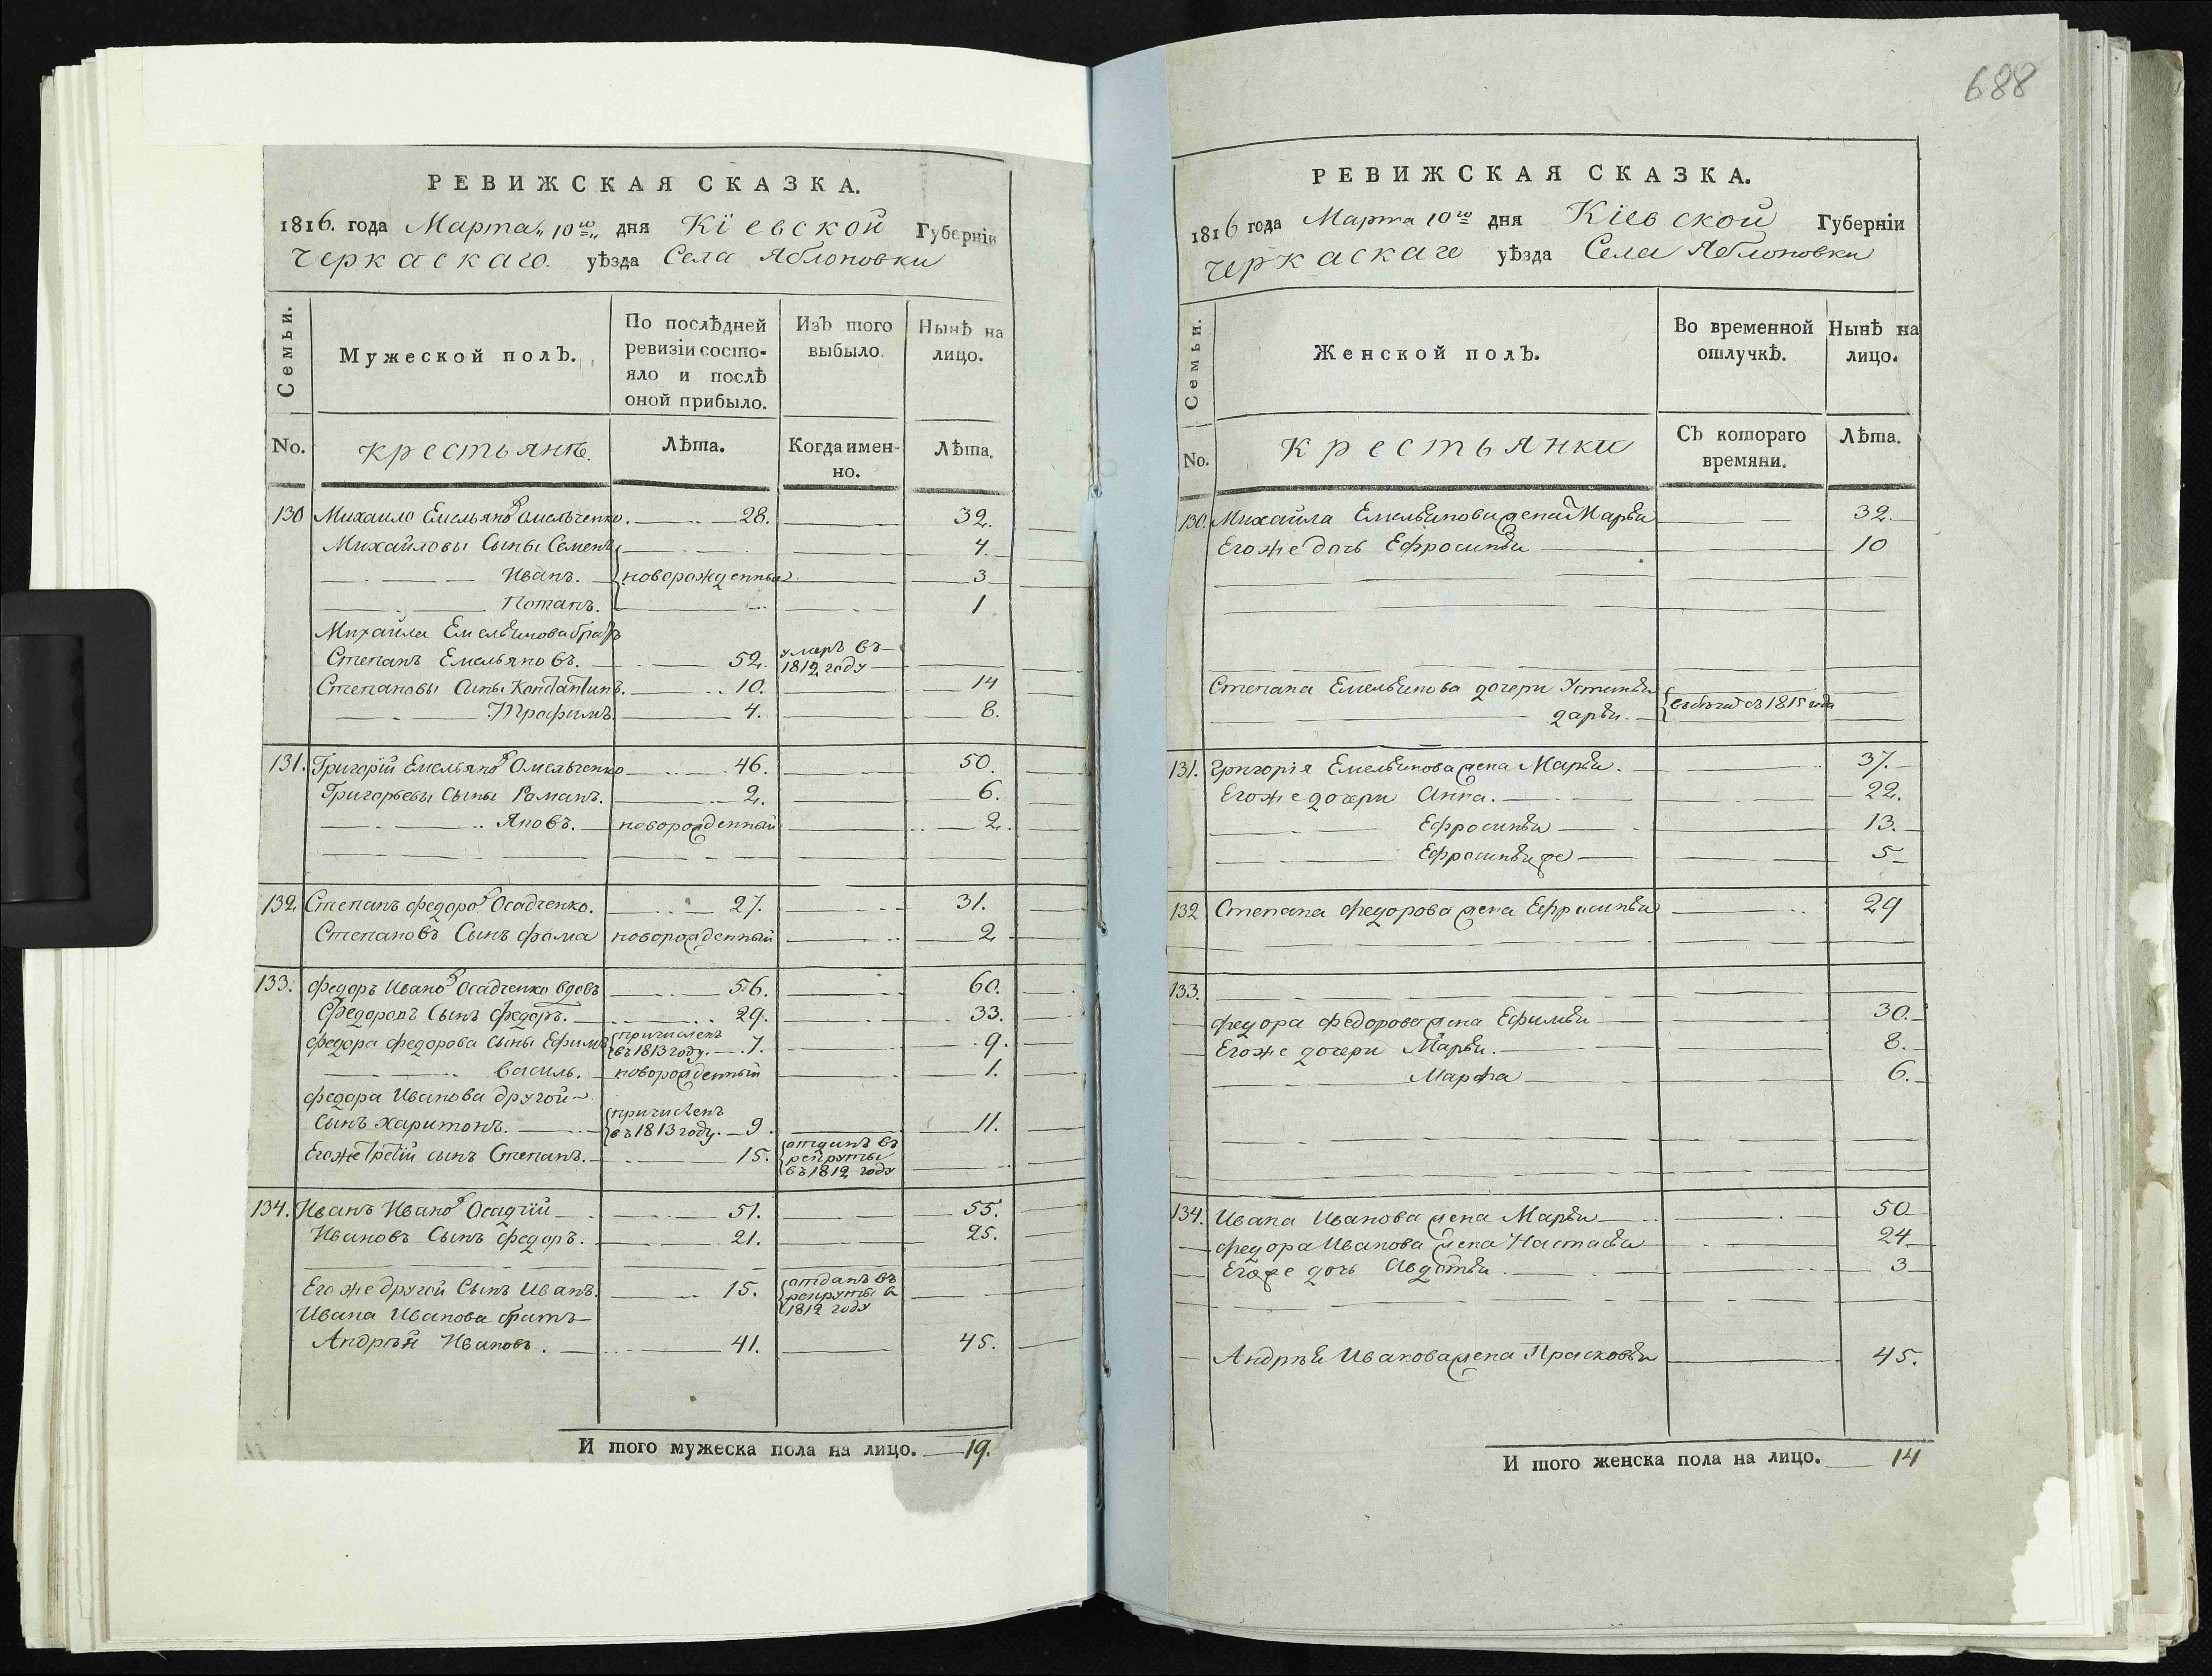 688
РЕВИЖСКАЯ СКАЗКА.
1816. года Марта 10го дня Кіевской Губерніи
Черкаскаго. уѣзда Села Яблоновки
Семьи.
Мужеской полъ.
По послѣдней ревизіи состояло и послѣ оной прибыло.
Изъ того выбыло.
Нынѣ на лицо.
No.
крестьянѣ.
Лѣта.
Когда именно.
Лѣта.
130 Михаило Емельяновъ Омельченко. 28. 32.
Михайловы Сыны Семенъ 4.
Иванъ. новорожденныи 3
Потапъ. 1
Михайла Емельянова братъ
Степанъ Емельяновъ. 52. умеръ въ 1812 году
Степановы Сыны Константинъ. 10. 14
Трофимъ. 4. 8.
131. Григорій Емельяновъ Омельченко 46. 50.
Григорьевы Сыны Романъ. 2. 6.
Яковъ. новорожденный 2.
132 Степанъ Федоровъ Осадченко. 27. 31.
Степановъ Сынъ Фома новорожденный 2
133. Федоръ Ивановъ Осадченко вдовъ 56. 60.
Федоровъ Сынъ Федоръ. 29. 33.
Федора Федорова Сыны Ефимъ причисленъ въ 1813 году. 7. 9.
Василь. новорожденный 1.
Федора Иванова другой
Сынъ Харитонъ. причисленъ въ 1813 году. 9. 11.
Егоже Третій сынъ Степанъ. 15. отданъ въ рекруты въ 1812 году
134. Иванъ Ивановъ Осадчій 51. 55.
Ивановъ Сынъ Федоръ. 21. 25.
Его же другой Сынъ Иванъ. 15. отданъ въ рекруты в 1812 году
Ивана Иванова братъ
Андрѣй Ивановъ. 41. 45.
И того мужеска пола на лицо. 19.
РЕВИЖСКАЯ СКАЗКА.
1816 года Марта 10го дня Кіевской Губерніи
Черкаскаго уѣзда Села Яблоновки
Семьи.
Женской полъ.
Во временной отлучкѣ.
Нынѣ на лицо.
No.
Крестьянки
Съ котораго времяни.
Лѣта.
130. Михайла Емельянова жена Марья 32.
Егоже дочь Ефросинья 10
Степана Емельянова дочери Устинья
Дарья. с 1815 года
131. Григорія Емельянова жена Марья. 37.
Егоже дочери Анна. 22.
Ефросинья 13.
Ефросинья же 5
132 Степана Федорова жена Ефросинья 29
133.
Федора Федорова жена Ефимья 30.
Егоже дочери Марья. 8.
Марфа 6.
134. Ивана Иванова жена Марья 50
Федора Иванова жена Настасья 24
Егоже дочь Авдотья. 3
Андрѣя Иванова жена Прасковья 45.
И того женска пола на лицо. 14